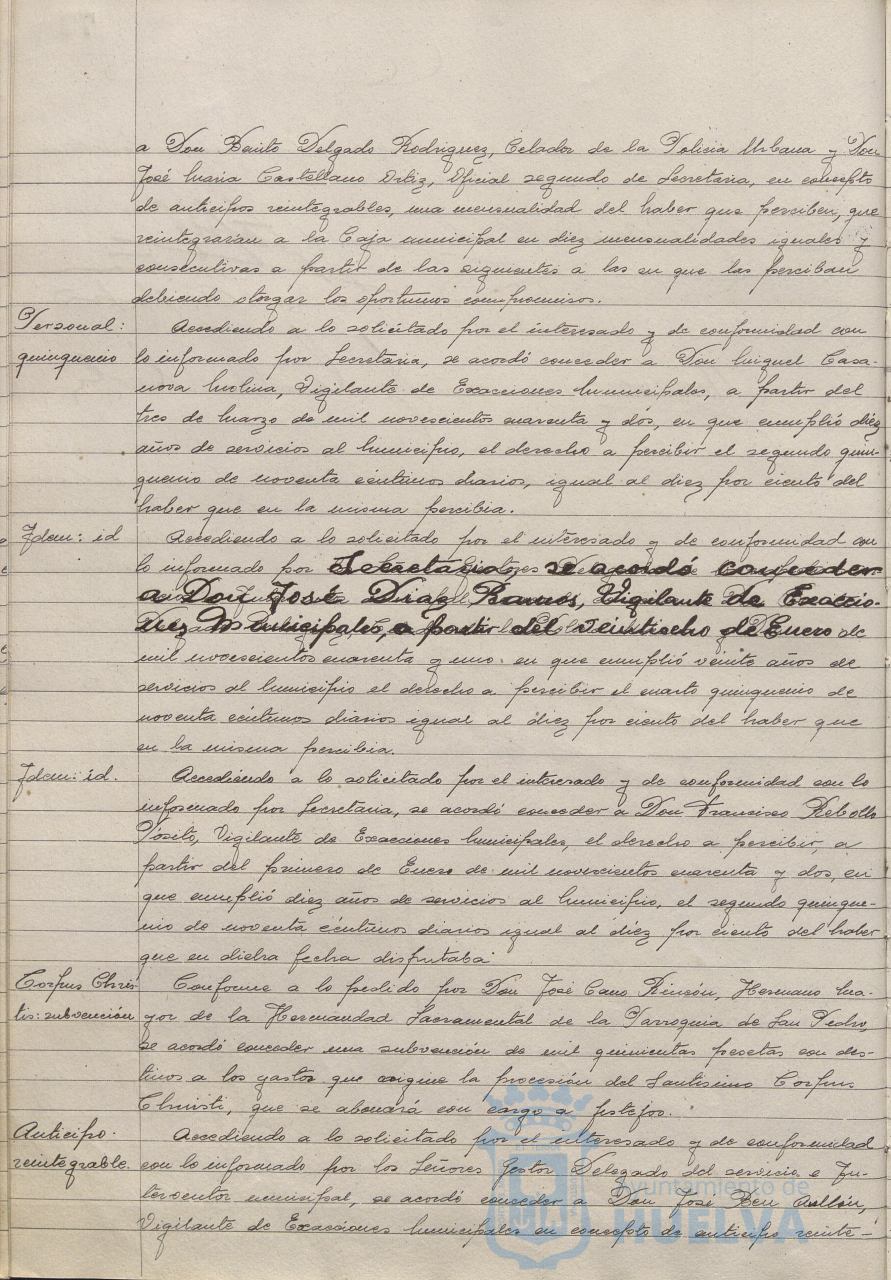 a Don Benito Delgado Rodriguez, Celador de la Policia Urbana y Don
José Maria Castellano Ortiz, Oficial segundo de Secretaria, en concepto
de anticipos reintegrables, una mensualidad del haber que perciben, que
reintegraran a la Caja municipal en diez mensualidades iguales y
consecutivas a partir de las siguientes a las en que las perciban
debiendo otorgar los oportunos compromisos.
Personal:
quinquenio
Accediendo a lo solicitado por el interesado y de conformidad con
lo informado por Secretaria, se acordó conceder a Don Miguel Casa-
nova Molina, Vigilante de Exacciones Municipales, a partir del
tres de Marzo de mil novescientos cuarenta y dos, en que cumplió diez
años de servicios al Municipio, el derecho a percibir el segundo quin-
quenio de noventa céntimos diarios, igual al diez por ciento del
haber que en la misma percibia.
Idem: id
Accediendo a lo solicitado por el interesado y de conformidad con
lo informado por Secretaria, se acordó conceder
a Don José Diaz Ramos, Vigilante de Exaccio-
nes Municipales, a partir del veintiocho de Enero de
mil novescientos cuarenta y uno en que cumplió veinte años de
servicios al Municipio el derecho a percibir el cuarto quinquenio de
noventa céntimos diarios igual al diez por ciento del haber que
en la misma percibia.
Idem: id.
Accediendo a lo solicitado por el interesado y de conformidad con lo
informado por Secretaria, se acordó conceder a Don Francisco Rebollo
Pósito, Vigilante de Exacciones Municipales, el derecho a percibir, a
partir del primero de Enero de mil novescientos cuarenta y dos, en
que cumplió diez años de servicios al Municipio, el segundo quinque-
nio de noventa céntimos diarios igual al diez por ciento del haber
que en dicha fecha disfrutaba.
Corpus Chris-
tis: subvención
Conforme a lo pedido por Don José Cano Rincón, Hermano Ma-
yor de la Hermandad Sacramental de la Parroquia de San Pedro,
se acordó conceder una subvención de mil quinientas pesetas con des-
tinos a los gastos que origine la procesión del Santisimo Corpus
Christi, que se abonará con cargo a festejos.
Anticipo
reintegrable.
Accediendo a lo solicitado por el interesado y de conformidad
con lo informado por los Señores Gestor Delegado del servicio e In-
terventor municipal, se acordó conceder a Don José Ben
Vigilante de Exacciones Municipales en concepto de anticipo reinte-
Ayuntamiento de
HUELVA